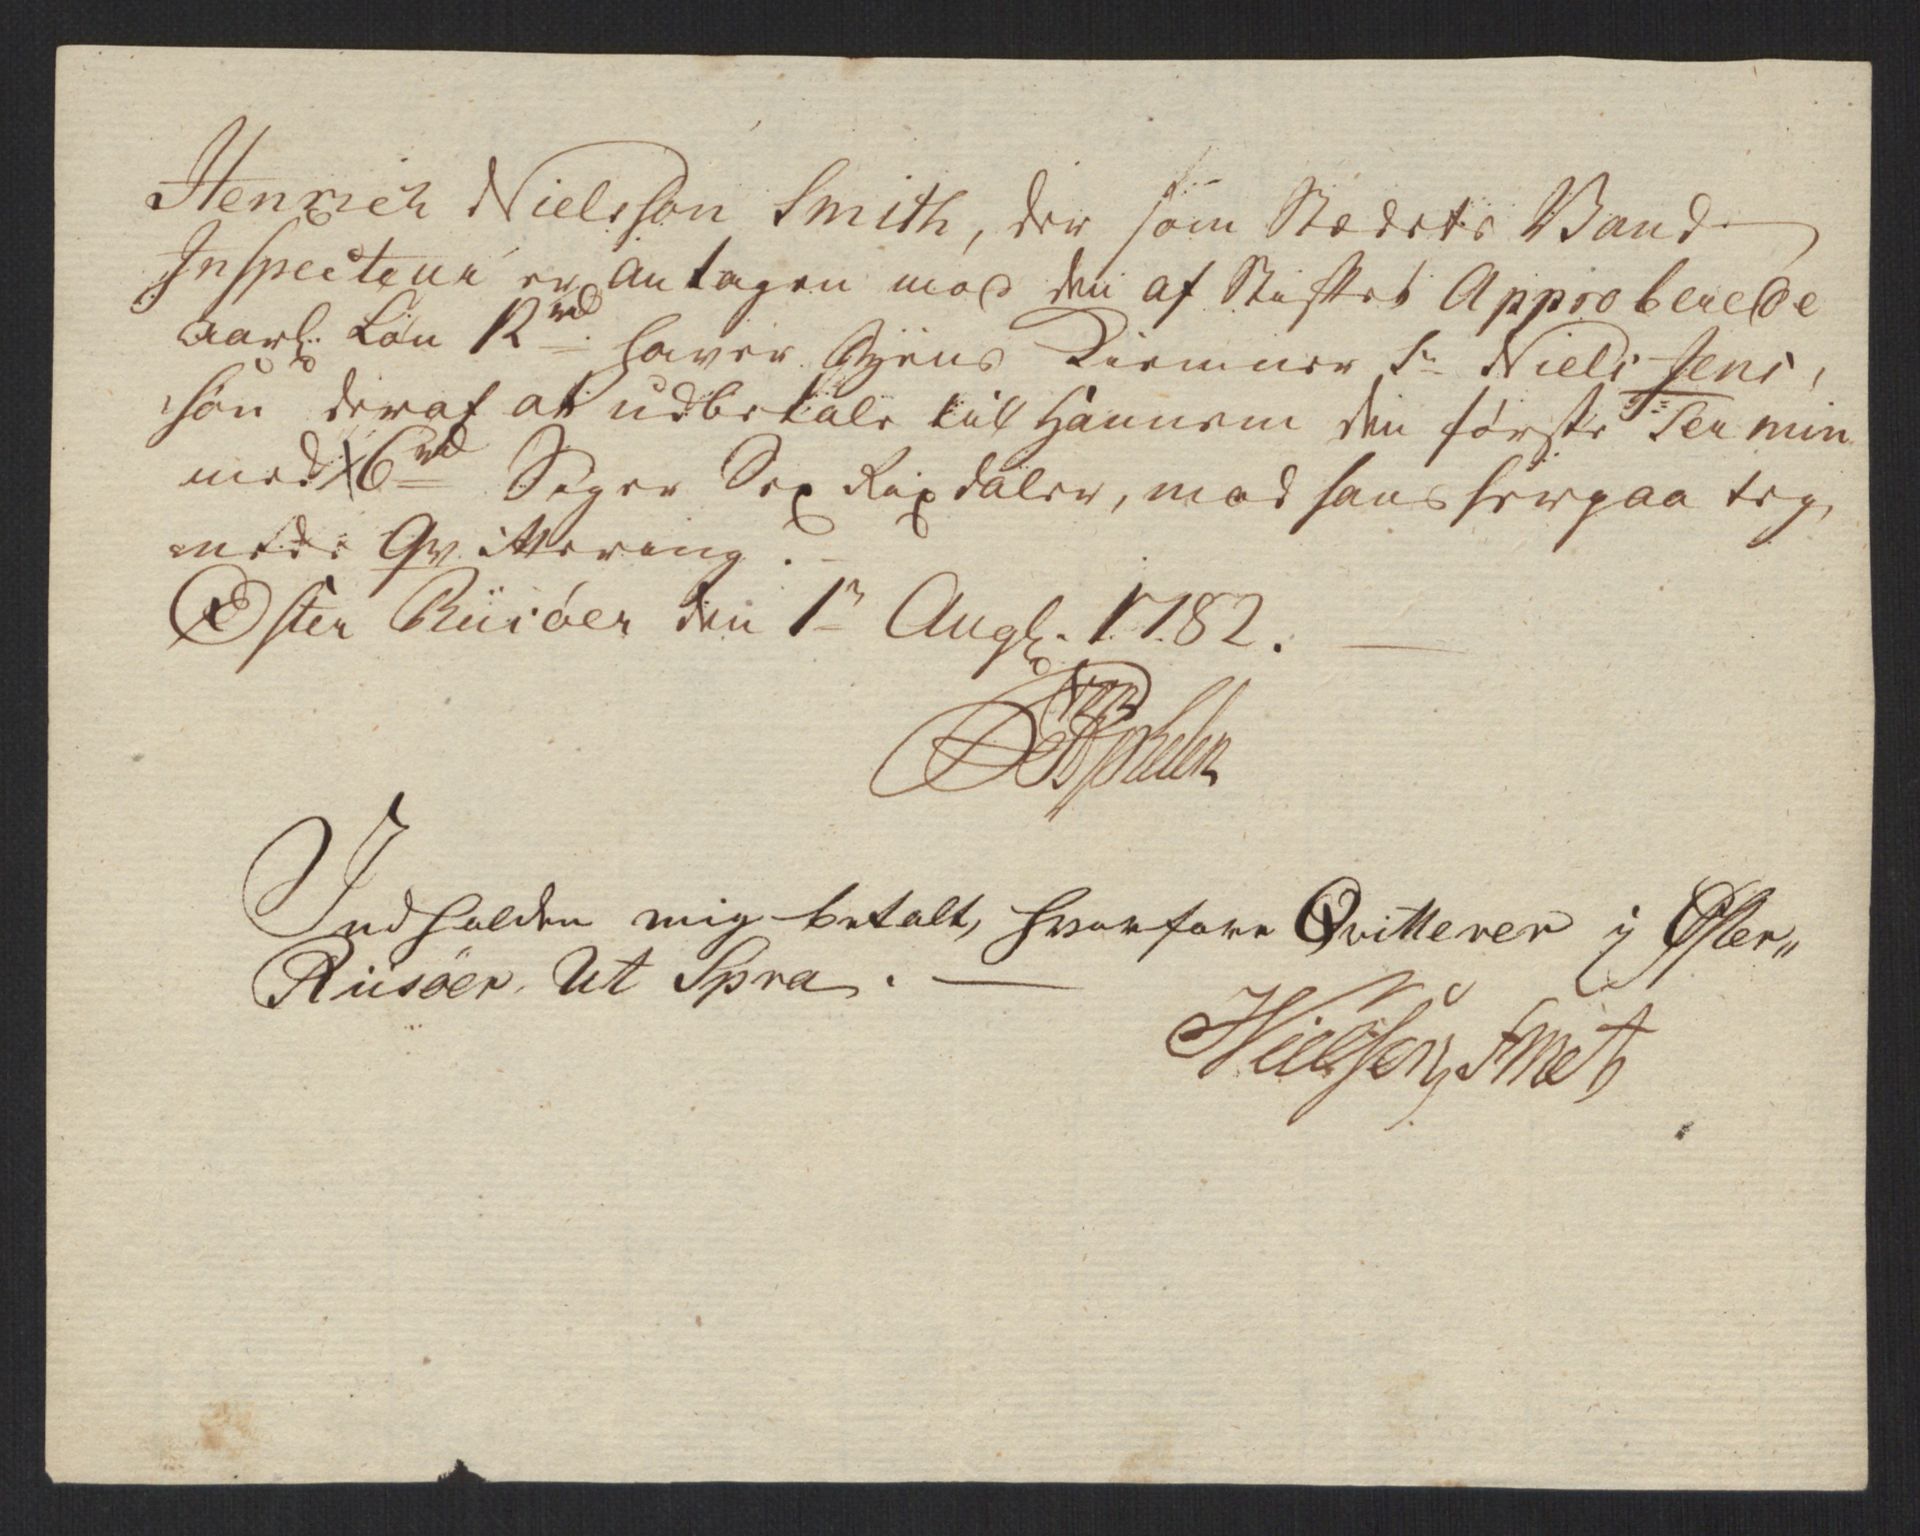 Henrich Nielsson Smith, der som Stædets Vand
Inspecteur er antagen mod den af Stiftet Approberede
aarl. Løn 12 rd. haver Byens Kiemner Sr. Niels Jens,
søn deraf at udbetale till Hannem den første Termin
med 6 rd Siger Sex Rixdaler, mod hans herpaa teg,
nede Qvittering.
Øster Riisöer den 1n Aug. 1782.
Indholden mig betalt, hvorfore Qvitterer i Øster„
Riisöer. Ut Spra.
Nielsen Smet